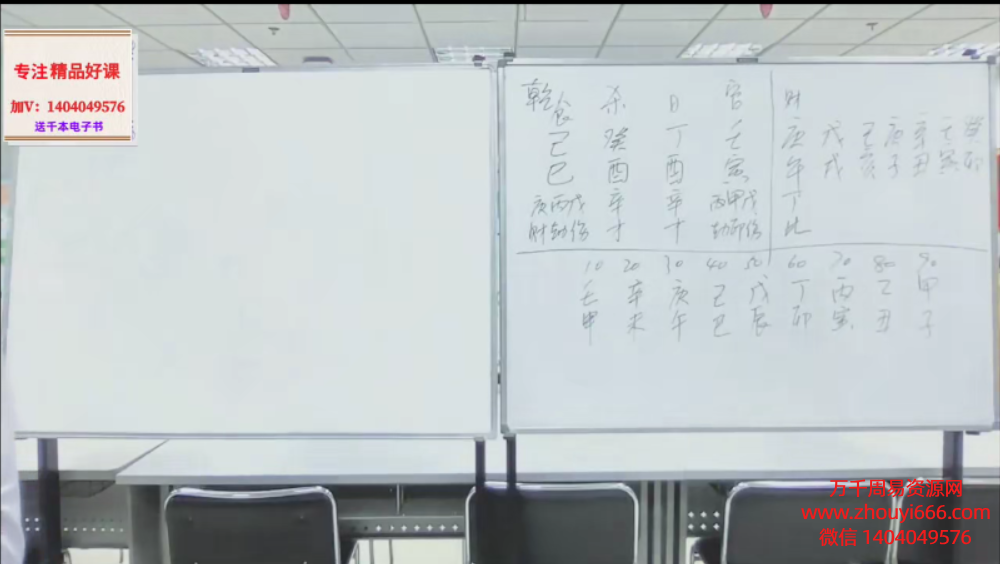 专注精品好课
加V：1404049576
送千本电子书
乾 食 杀 日 官 财
己 癸 丁 壬 庚 戊 己 庚 辛 壬 癸
巳 酉 酉 寅 午 戌 亥 子 丑 寅 卯
庚丙戊 辛 辛 丙甲戊 丁
财劫伤 才 才 劫印伤 比
10 20 30 40 50 60 70 80 90
壬 辛 庚 己 戊 丁 丙 乙 甲
申 未 午 巳 辰 卯 寅 丑 子
万千周易资源网
www.zhouyi666.com
微信 1404049576